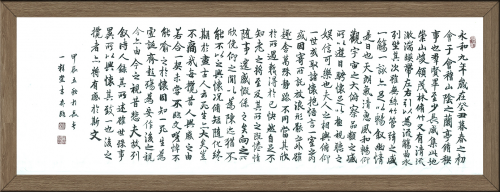 永和九年歲在癸丑暮春之初
會于會稽山陰之蘭亭脩禊
事也群賢畢至少長咸集此地
有崇山峻領茂林脩竹又有清流
激湍暎帶左右引以為流觴曲水
列坐其次雖無絲竹管弦之盛
一觴一詠亦足以暢敘幽情
是日也天朗氣清惠風和暢仰
觀宇宙之大俯察品類之盛
所以遊目騁懷足以極視聽之
娛信可樂也夫人之相與俯仰
一世或取諸懷抱悟言一室之內
或因寄所託放浪形骸之外雖
趣舍萬殊靜躁不同當其欣
於所遇暫得於己快然自足不
知老之將至及其所之既惓情
隨事遷感慨係之矣向之所
欣俛仰之閒以為陳迹猶不
能不以之興懷況脩短隨化終
期於盡古人云死生亦大矣豈
不痛哉每攬昔人興感之由
若合一契未嘗不臨文嗟悼不
能喻之於懷固知一死生為虛
誕齊彭殤為妄作後之視
今亦由今之視昔悲夫故列
敘時人錄其所述雖世殊事
異所以興懷其致一也後之
攬者亦將有感於斯文
甲辰